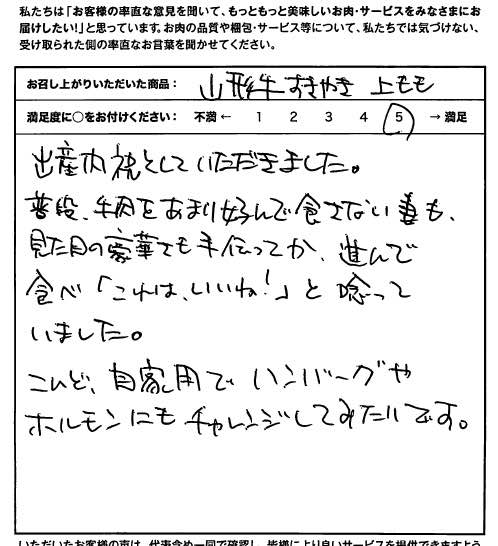 私たちは「お客様の率直な意見を聞いて、もっともっと美味しいお肉・サービスをみなさまにお
届けしたい!」と思っています。お肉の品質や梱包・サービス等について、私たちでは気づけない、
受け取られた側の率直なお言葉を聞かせてください。
お召し上がりいただいた商品： 山形牛すきやき 上もも
満足度に○をお付けください： 不満 ← 1 2 3 4 5 → 満足
出産内祝としていただきました。
普段、牛肉をあまり好んで食さない妻も、
見た目の豪華さも手伝ってか、進んで
食べ「これは、いいね!」と唸って
いました。
こんど、自家用でハンバーグや
ホルモンにもチャレンジしてみたいです。
いただいたお客様の声は、代表含め一同で確認し、皆様により良いサービスを提供できますよう